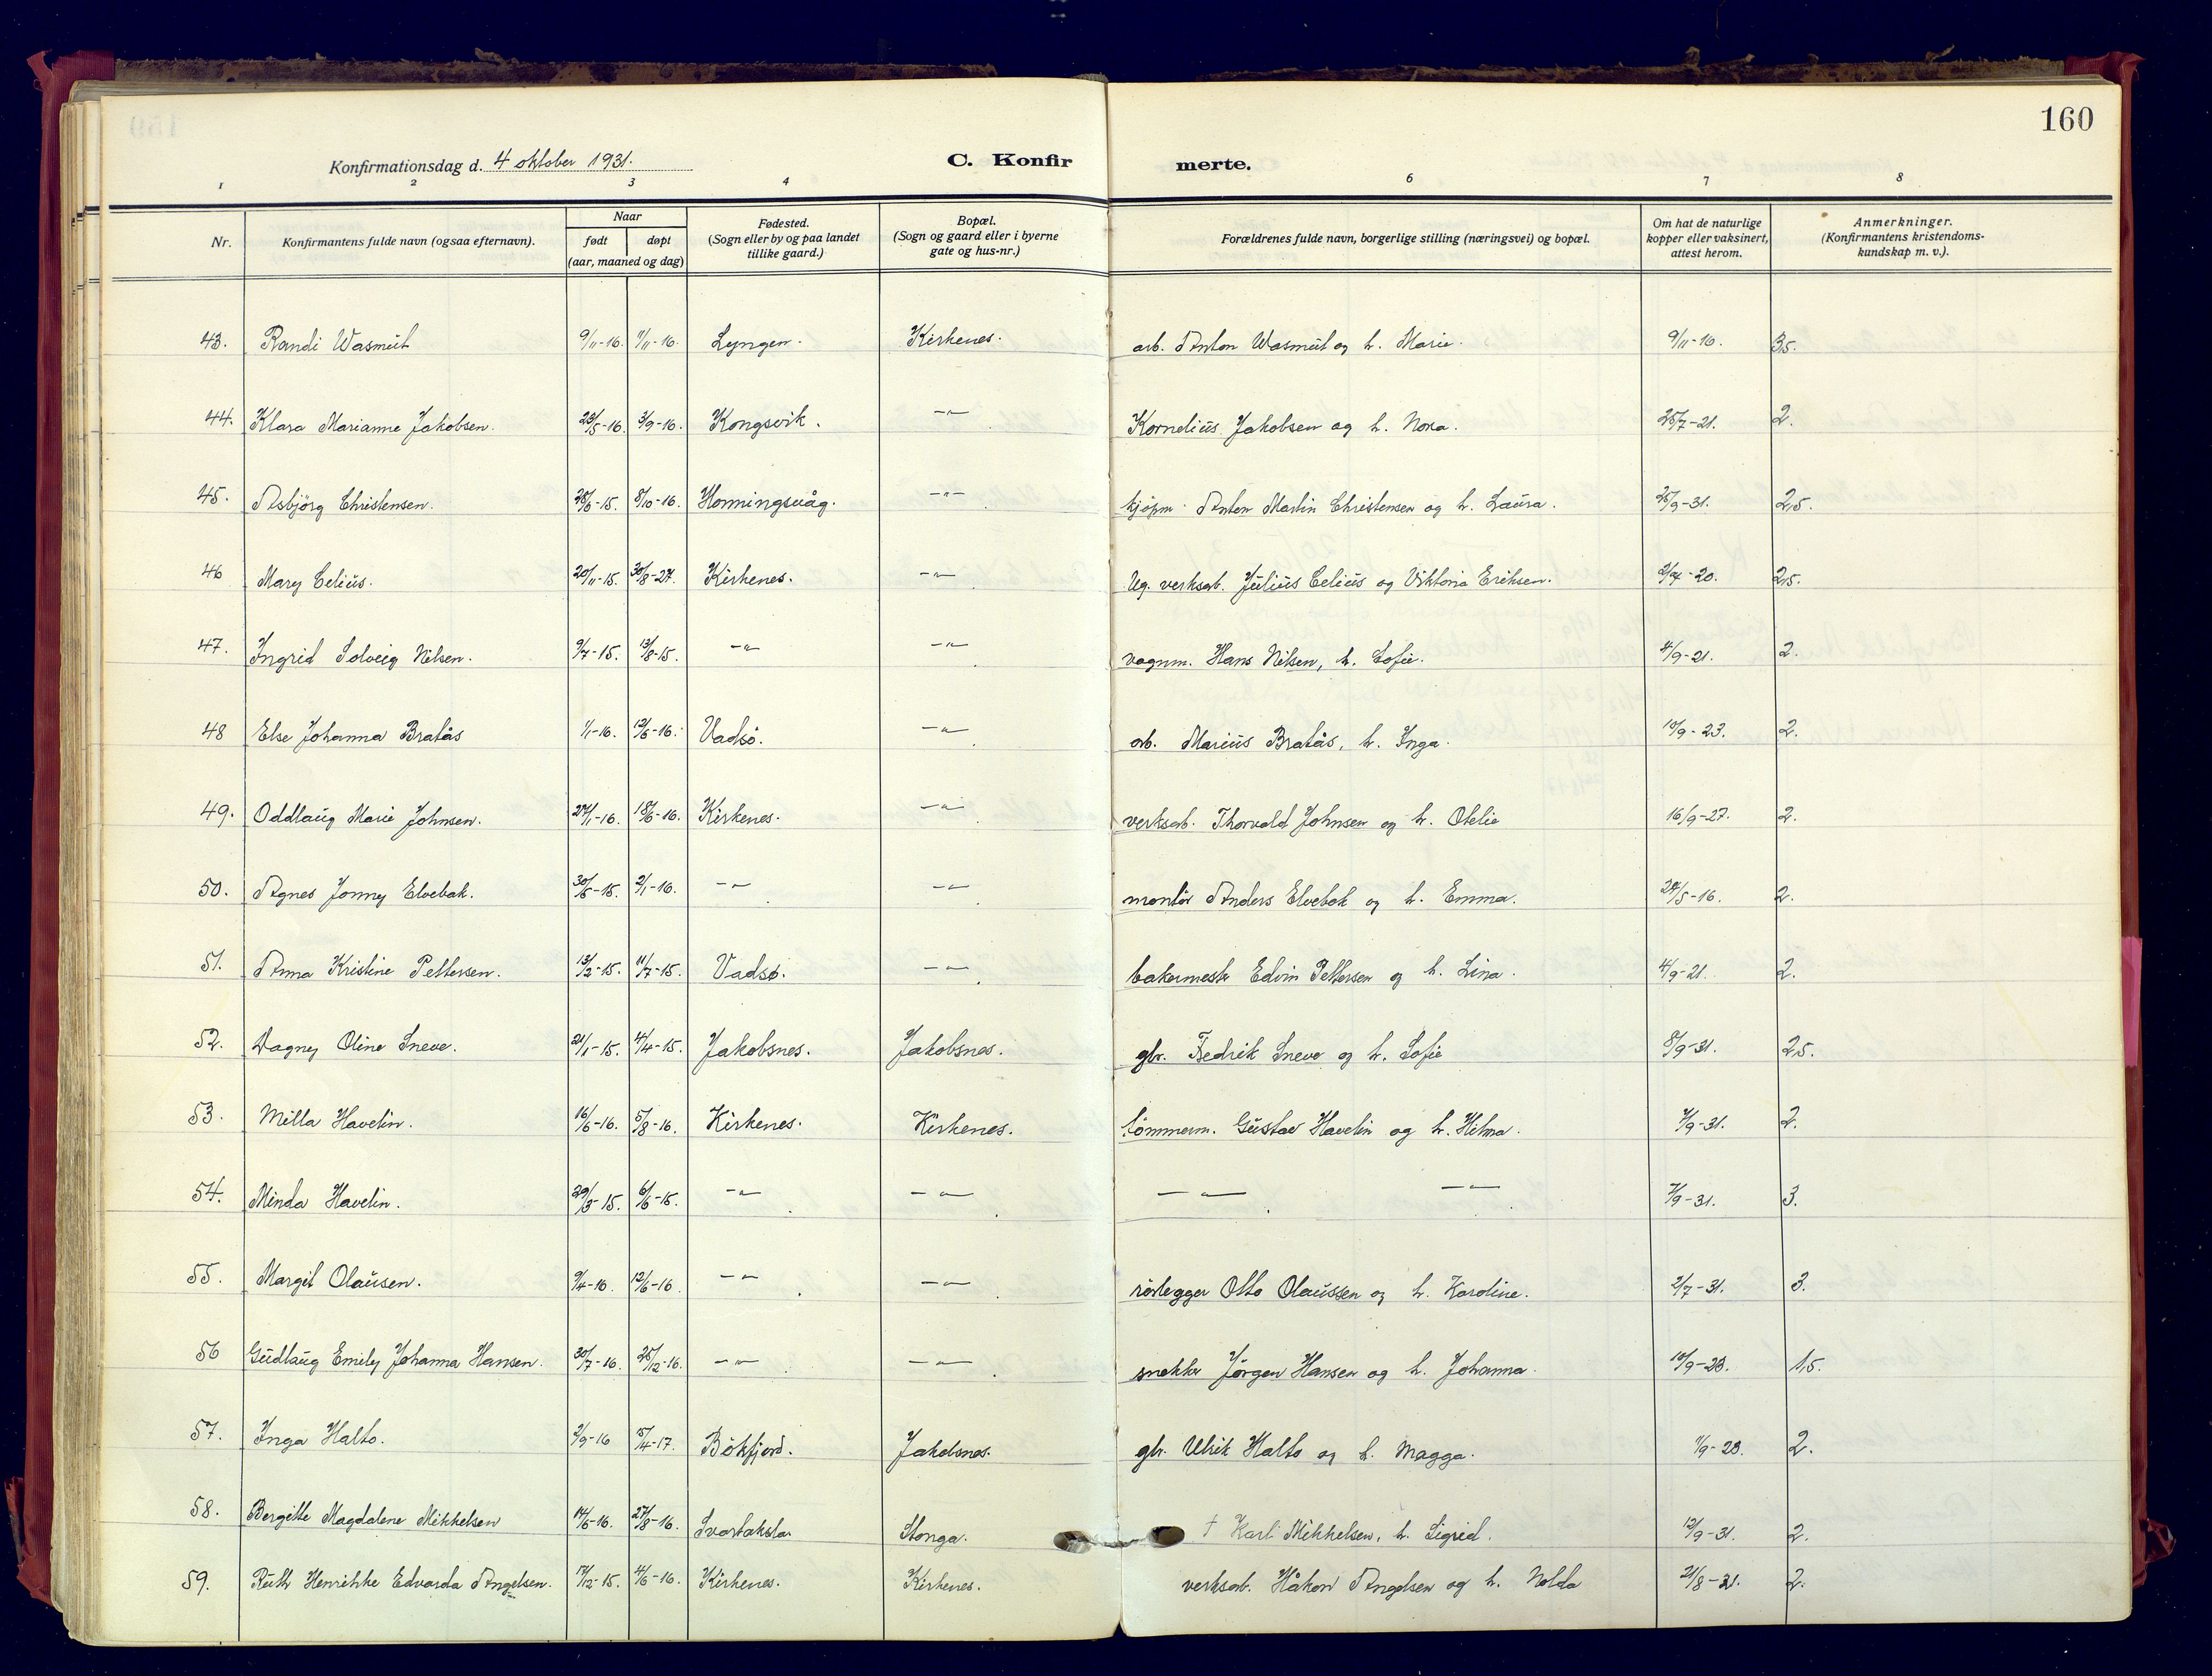 160
Konfirmationsdag d. 4 oktober 1931.
C. Konfirmerte.
1 2 3 4 6 7 8
Nr. | Konfirmantens fulde navn (ogsaa efternavn). | Naar født døpt (aar, maaned og dag) | Fødested. (Sogn eller by og paa landet tillike gaard.) | Bopæl. (Sogn og gaard eller i byerne gate og hus-nr.) | Forældrenes fulde navn, borgerlige stilling (næringsvei) og bopæl. | Om hat de naturlige kopper eller vaksinert, attest herom. | Anmerkninger. (Konfirmantens kristendomskundskap m. v.).
43. Randi Wasmüt 9/11-16. 11-16. Lyngen. Kirkenes. arb. Anton Wasmüt og h. Marie. 9/11-16. 3,5.
44. Klara Marianne Jakobsen. 23/5-16. 3/9-16. Kongsvik. —"— Kornelius Jakobsen og h. Nora. 25/7-21. 2.
45. Asbjörg Christensen. -15. 8/10-16. Honningsvåg. —"— kjöpm. Anton Martin Christensen og h. Laura. 25/9-31. 2,5.
46 Mary Celius. 20/11-15. 30/8-27. Kirkenes. —"— Ug. verksarb. Julius Celius og Viktoria Eriksen. -20. 2,5.
47. Ingrid Solveig Nilsen. 9/7-15. 13/8-15. —"— —"— vognm. Hans Nilsen, h. Sofie. 4/9-21. 2.
48 Else Johanna Bratås 1/1-16. 12/6-16. Vadsö. —"— arb. Marius Bratås, h. Inga. 10/9-23. 2.
49. Oddlaug Marie Johnsen. 27/1-16. 18/6-16. Kirkenes. —"— verksarb. Thorvald Johnsen og h. Otelie 16/9-27. 2.
50. Agnes Jonny Elvebak. -15. 2/1-16. —"— —"— montör Anders Elvebak og h. Emma. /5-16. 2.
51. Anna Kristine Pettersen. 13/2-15. 11/7-15. Vadsö. —"— bakermestr Edvin Pettersen og h. Lina. 4/9-21. 2.
52. Dagny Oline Sneve. 21/1-15. 4/4-15. Jakobsnes. Jakobsnes. gbr. Fredrik Sneve og h. Sofie 8/9-31. 2,5.
53. Milla Havelin. 16/6-16. 5/8-16. Kirkenes. Kirkenes. tömmerm. Gustav Havelin og h. Hilma. 7/9-31. 2.
54. Minda Havelin. 29/3-15. 6/6-15. —"— —"— —"— —"— 7/9-31. 3.
55. Margit Olausen. 9/4-16. 12/6-16 —"— —"— rörlegger Otto Olaussen og h. Karoline. 2/7-31. 3.
56 Gudlaug Emily Johanna Hansen. 30/7-16. 25/12-16. —"— —"— snekker Jörgen Hansen og h. Johanna. 10/9-23. 1,5.
57. Inga Halto. 2/9-16 /4-17. Bökfjord. Jakobsnes. gbr. Ulrik Halto og h. Magga. /9-23. 2.
58. Bergitte Magdalene Mikkelsen 14/6-16. 27/8-16. Svartaksla Stonga. † Karl Mikkelsen, h. Sigrid. 12/9-31. 2.
59. Ruth Henrikke Edvarda Angelsen. 17/12-15. 4/6-16. Kirkenes. Kirkenes. verksarb. Håkon Angelsen og h. Nolda 21/8-31. 2.